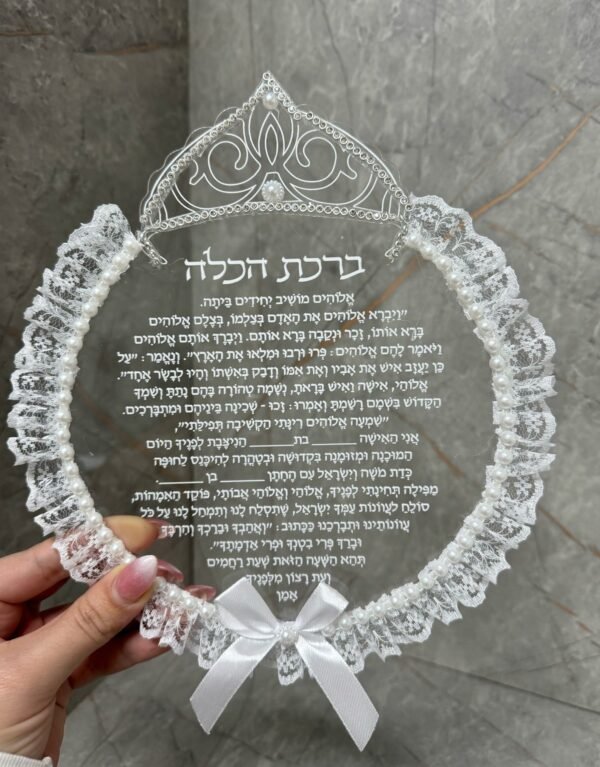 ברכת הכלה
אֱלוֹהִים מוֹשִׁיב יְחִידִים בַּיְתָה.
"וַיִּבְרָא אֱלוֹהִים אֶת הָאָדָם בְּצַלְמוֹ, בְּצֶלֶם אֱלוֹהִים
בָּרָא אוֹתוֹ, זָכָר וּנְקֵבָה בָּרָא אוֹתָם. וַיְבָרֶךְ אוֹתָם אֱלוֹהִים
וַיֹּאמֶר לָהֶם אֱלוֹהִים: פְּרוּ וּרְבוּ וּמִלְאוּ אֶת הָאָרֶץ". וְנֶאֱמַר: "עַל
כֵּן יַעֲזָב אִישׁ אֶת אָבִיו וְאֶת אִמּוֹ וְדָבַק בְּאִשְׁתּוֹ וְהָיוּ לְבָשָׂר אֶחָד".
אֱלוֹהַי, אִישָׁה וְאִישׁ בָּרָאתָ, נְשָׁמָה טְהוֹרָה בָּהֶם נָתַתָּ וְשִׁמְךָ
הַקָּדוֹשׁ בִּשְׁמָם רָשַׁמְתָּ וְאָמְרוּ: זָכוּ - שְׁכִינָה בֵּינֵיהֶם וּמִתְבָּרְכִים.
"שִׁמְעָה אֱלוֹהִים רִינָּתִי הַקְשִׁיבָה תְּפִילָּתִי",
אֲנִי הָאִישָׁה ______ בת ______ הַנִּיצֶּבֶת לְפָנֶיךָ הַיּוֹם
הַמּוּכָנָה וּמְזוּמֶּנֶה בִּקְדוּשָּׁה וּבְטָהֳרָה לְהִיכָּנֵס לְחוּפָּה
כְּדַת מֹשֶׁה וְיִשְׂרָאֵל עִם הֶחָתָן ______ בן ______.
מַפִּילָה תְּחִינָּתִי לְפָנֶיךָ, אֱלוֹהַי וֵאלוֹהֵי אֲבוֹתַי, פּוֹקֵד הָאִמָּהוֹת,
סוֹלֵחַ לַעֲווֹנוֹת עַמְּךָ יִשְׂרָאֵל, שֶׁתִּסְלַח לָנוּ וְתִמְחַל לָנוּ עַל כָּל
עֲווֹנוֹתֵינוּ וּתְבָרְכֵנוּ כַּכָּתוּב: "וַאֲהֵבְךָ וּבֵרַכְךָ וְהִרְבֶּךָ
וּבֵרַךְ פְּרִי בִטְנְךָ וּפְרִי אַדְמָתֶךָ".
תְּהֵא הַשָּׁעָה הַזֹּאת שְׁעַת רַחֲמִים
וְעֵת רָצוֹן מִלְּפָנֶיךָ
אָמֵן